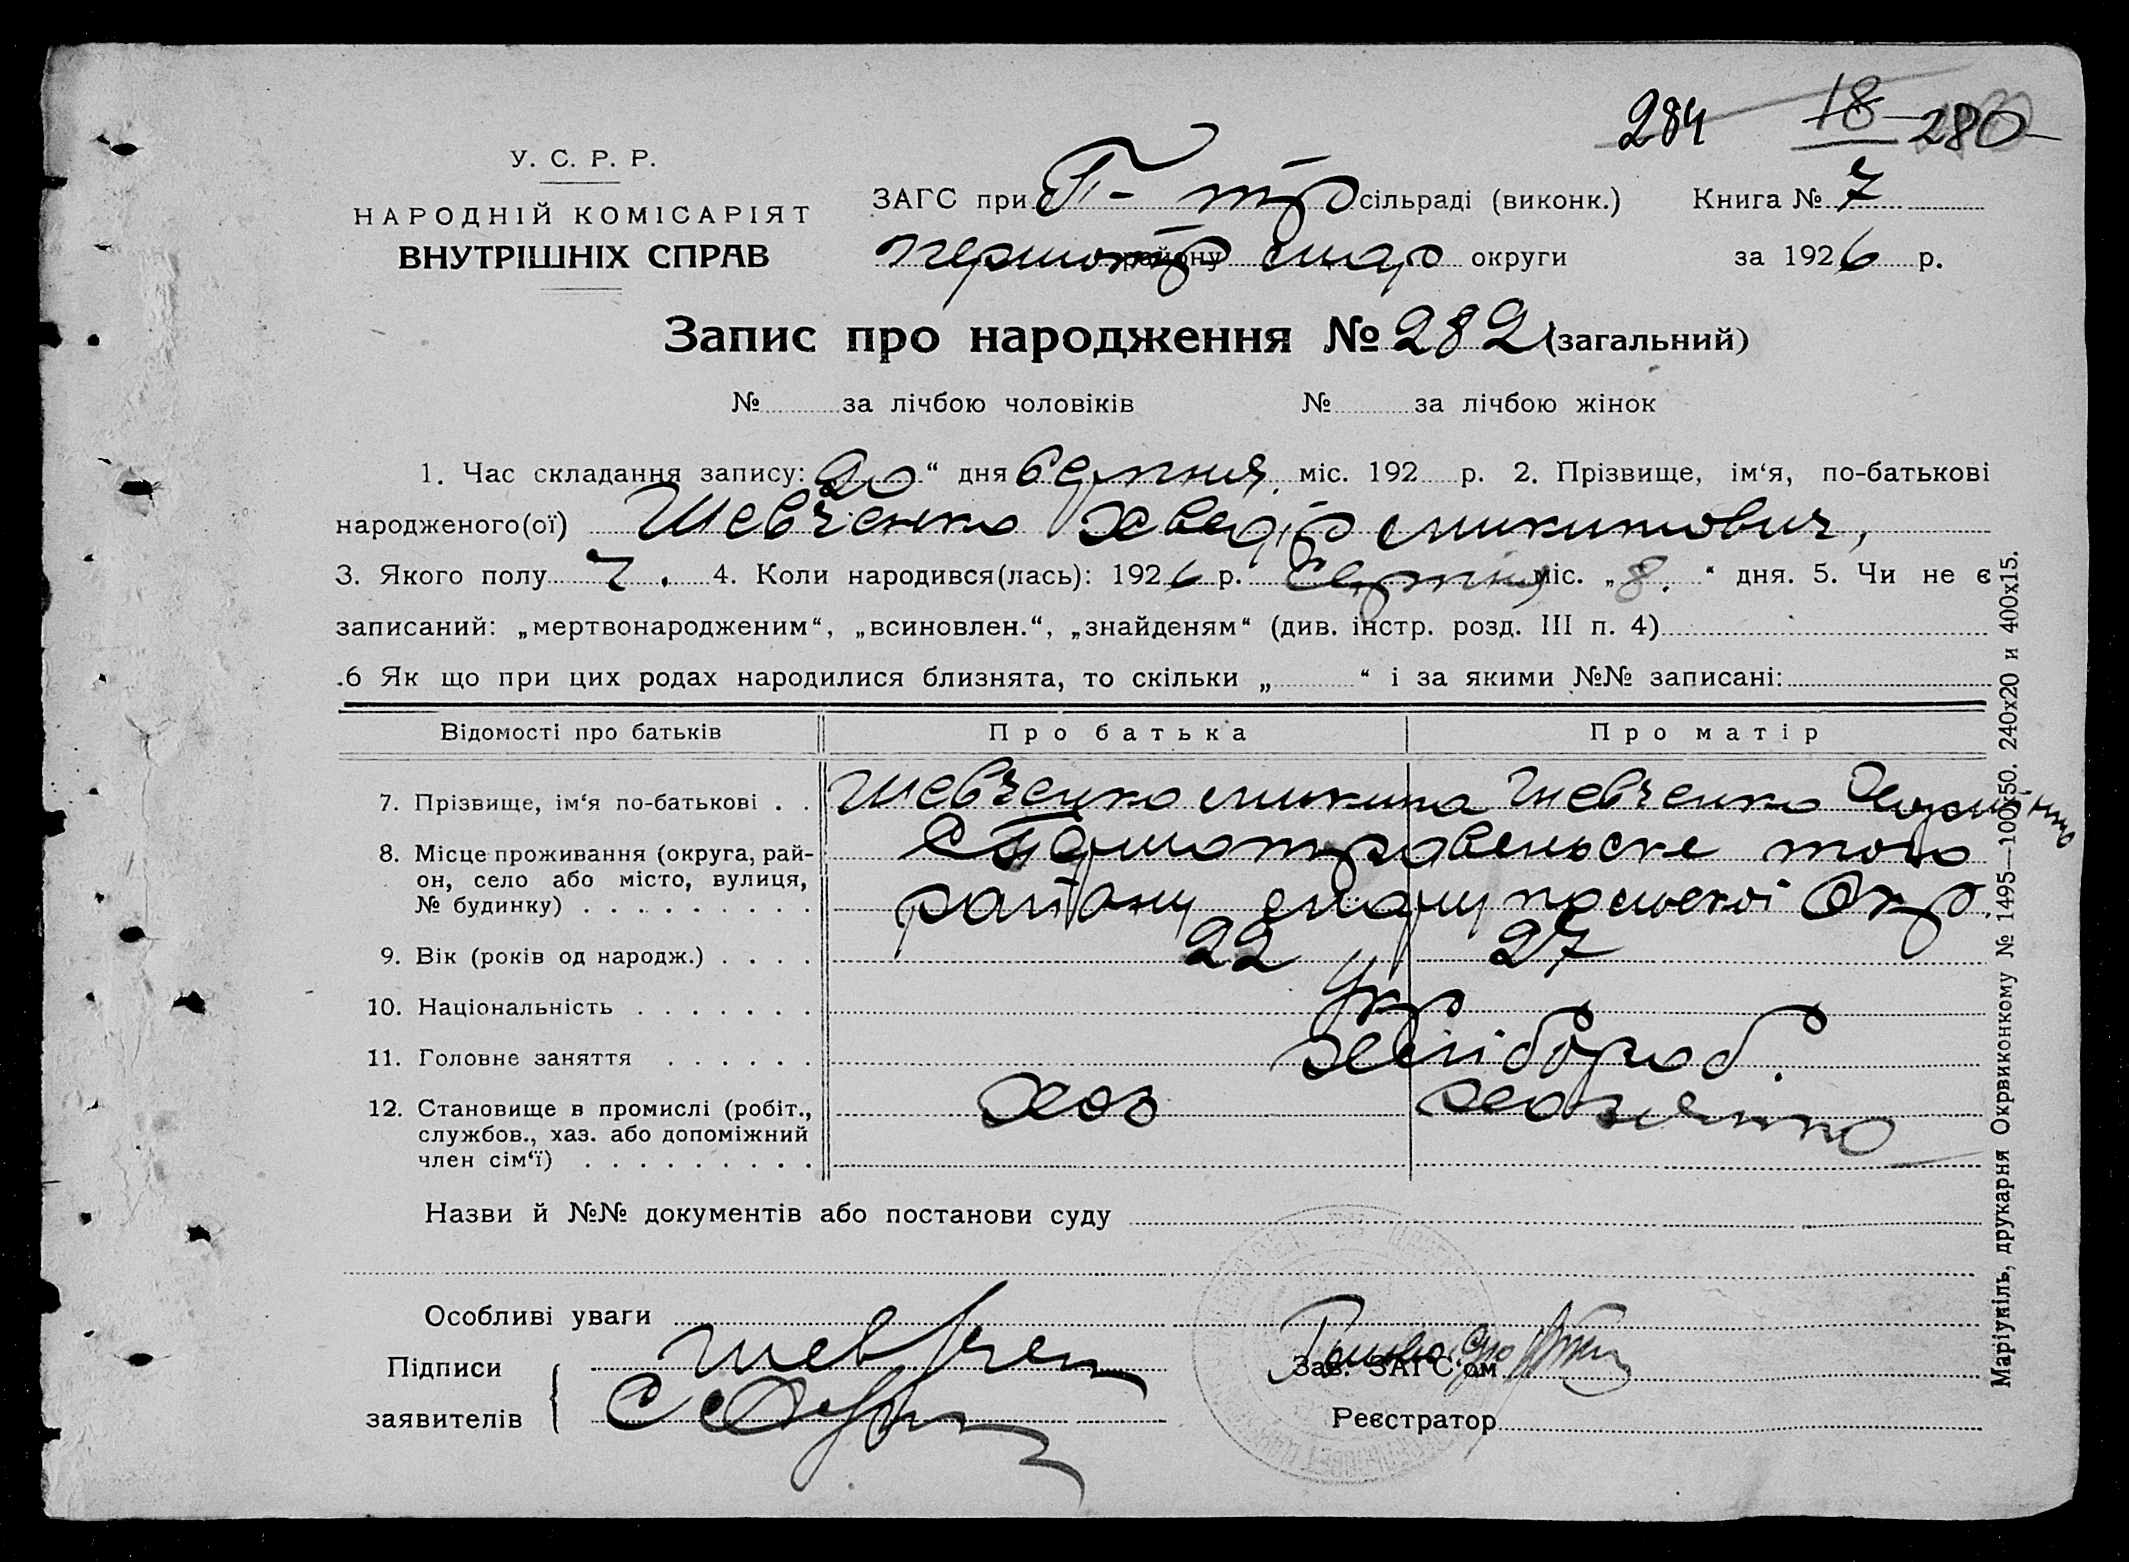 284 18 280
У. С. Р. Р.
НАРОДНІЙ КОМІСАРІЯТ
ВНУТРІШНІХ СПРАВ
ЗАГС при П-тр сільраді (виконк.) Книга № 7
першотр району мар округи за 1926 р.
Запис про народження № 282 (загальний)
№ за лічбою чоловіків № за лічбою жінок
1. Час складання запису: 20“ дня серпня міс. 192 р. 2. Прізвище, ім‘я, по-батькові
народженого(ої) Шевченко Хведір Микитович,
3. Якого полу ч. 4. Коли народився(лась): 1926 р. Серпня міс. „8.“ дня. 5. Чи не є
записаний: „мертвонародженим“, „всиновлен.“, „знайденям“ (див. інстр. розд. III п. 4)
.6 Як що при цих родах народилися близнята, то скільки „ “ і за якими №№ записані:
Відомості про батьків Про батька Про матір
7. Прізвище, ім‘я по-батькові . . Шевченко Микита Шевченко
8. Місце проживання (округа, рай-
он, село або місто, вулиця,
№ будинку) . . . . . . . . .
С Першотравеньске того
району Маріупольскої Окр.
9. Вік (років од народж.) . . . . 22 27
10. Національність . . . . . . . Укр
11. Головне заняття . . . . . . Хлібороб.
12. Становище в промислі (робіт.,
службов., хаз. або допоміжний
член сім‘ї) . . . . . . . . .
Хоз
Назви й №№ документів або постанови суду
Особливі уваги
Підписи
заявителів
Шевчен
Зав. ЗАГС‘ом
Реєстратор
Маріупіль, друкарня Окрвиконкому № 1495—100х50. 240х20 и 400х15.